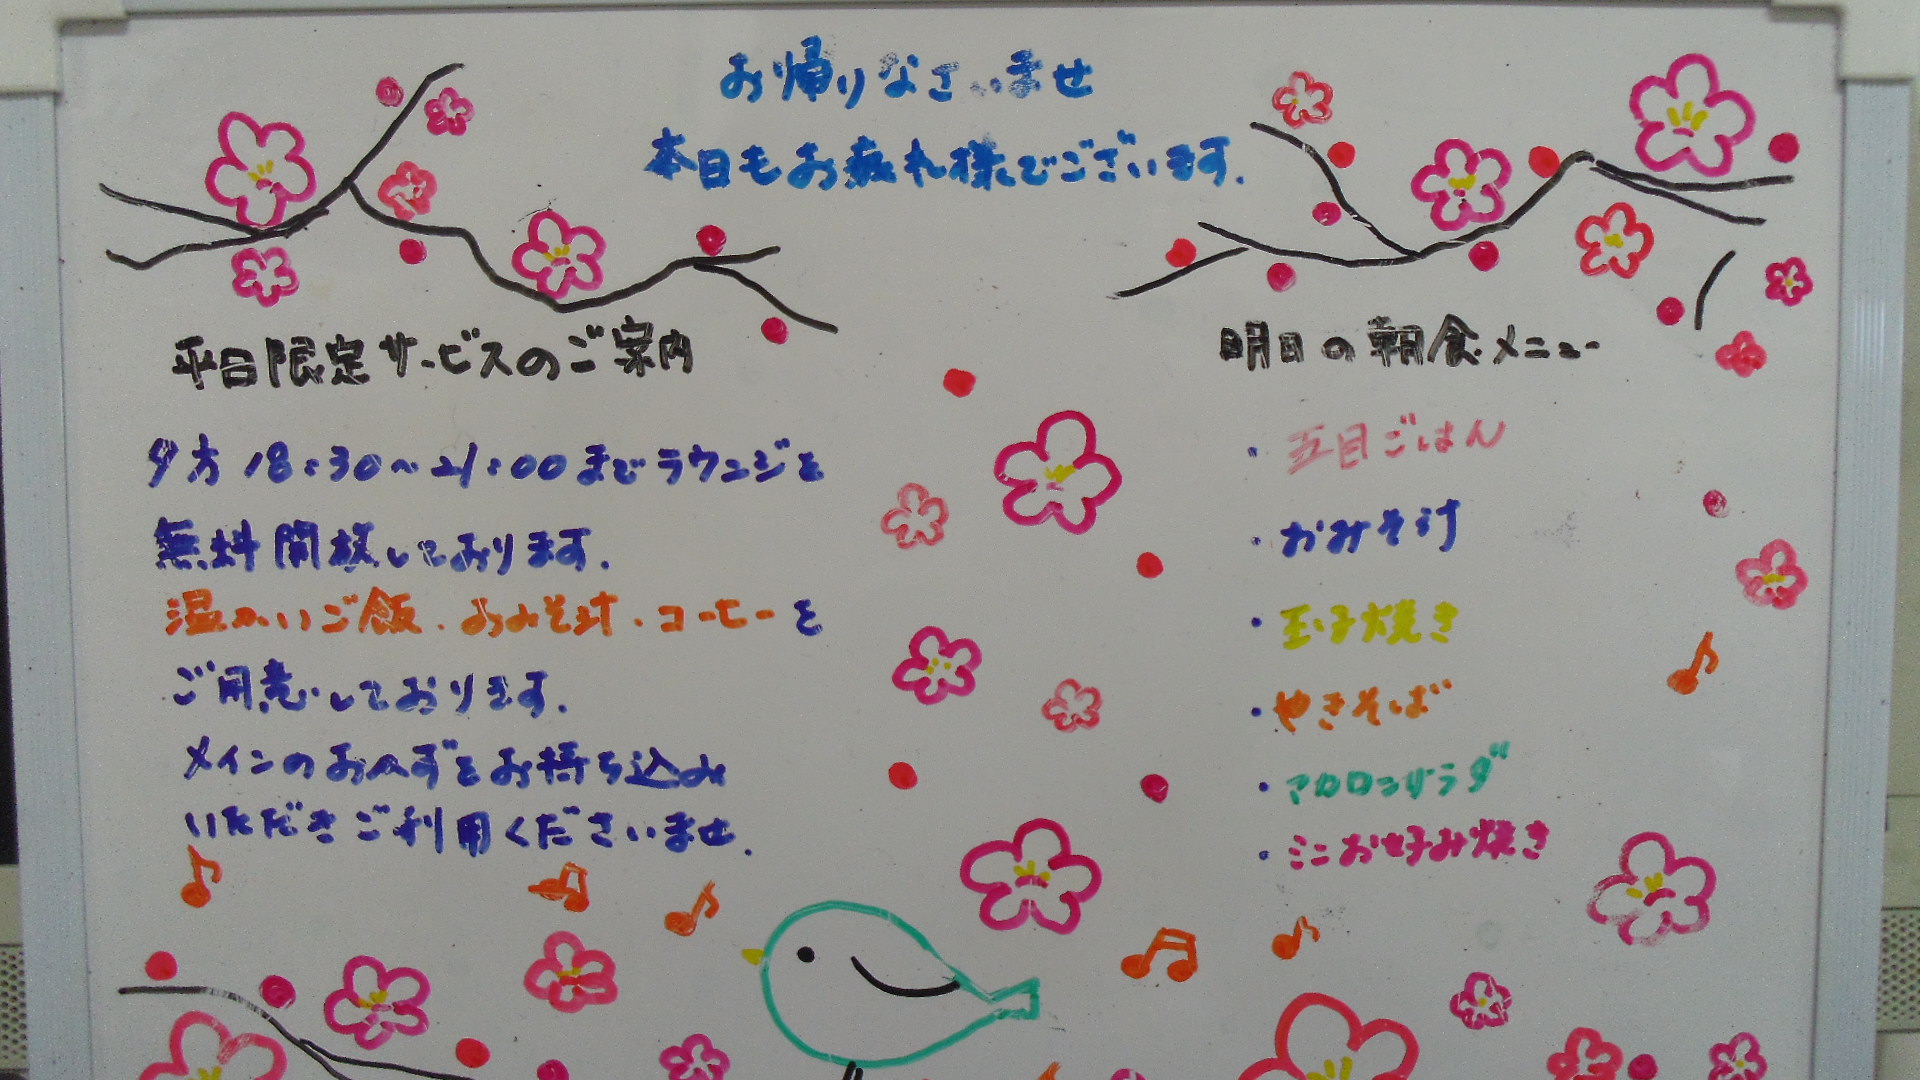 お帰りなさいませ
本日もお疲れ様でございます.
平日限定サービスのご案内
夕方18:30～21:00までラウンジを
無料開放しております.
温かいご飯.おみそ汁.コーヒーを
ご用意しております.
メインのおかずをお持ち込み
いただきご利用くださいませ.
明日の朝食メニュー
・五目ごはん
・おみそ汁
・玉子焼き
・やきそば
・マカロンサラダ
・ミニお好み焼き